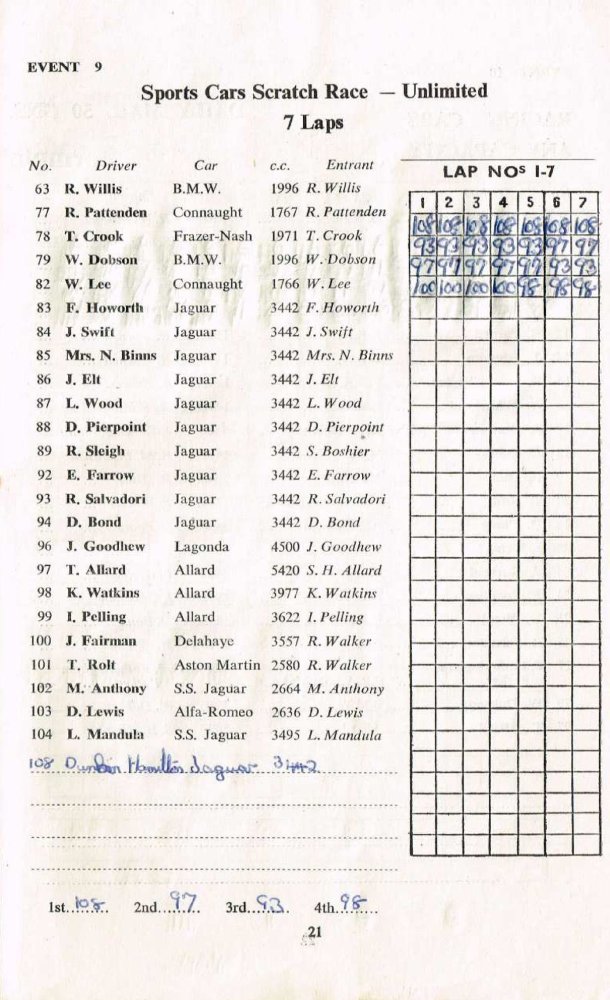 EVENT 9
Sports Cars Scratch Race — Unlimited
7 Laps
No. Driver Car c.c. Entrant
63 R. Willis B.M.W. 1996 R. Willis
77 R. Pattenden Connaught 1767 R. Pattenden
78 T. Crook Frazer-Nash 1971 T. Crook
79 W. Dobson B.M.W. 1996 W. Dobson
82 W. Lee Connaught 1766 W. Lee
83 F. Howorth Jaguar 3442 F. Howorth
84 J. Swift Jaguar 3442 J. Swift
85 Mrs. N. Binns Jaguar 3442 Mrs. N. Binns
86 J. Elt Jaguar 3442 J. Elt
87 L. Wood Jaguar 3442 L. Wood
88 D. Pierpoint Jaguar 3442 D. Pierpoint
89 R. Sleigh Jaguar 3442 S. Boshier
92 E. Farrow Jaguar 3442 E. Farrow
93 R. Salvadori Jaguar 3442 R. Salvadori
94 D. Bond Jaguar 3442 D. Bond
96 J. Goodhew Lagonda 4500 J. Goodhew
97 T. Allard Allard 5420 S. H. Allard
98 K. Watkins Allard 3977 K. Watkins
99 I. Pelling Allard 3622 I. Pelling
100 J. Fairman Delahaye 3557 R. Walker
101 T. Rolt Aston Martin 2580 R. Walker
102 M. Anthony S.S. Jaguar 2664 M. Anthony
103 D. Lewis Alfa-Romeo 2636 D. Lewis
104 L. Mandula S.S. Jaguar 3495 L. Mandula
108 Duncan Hamilton Jaguar 3442
LAP NOS 1-7
1 2 3 4 5 6 7
108 108 108 108 108 108 108
93 93 93 93 93 97 97
97 97 97 97 97 93 93
100 100 100 100 98 98 98
1st. 108. 2nd. 97. 3rd. 93. 4th. 98.
21